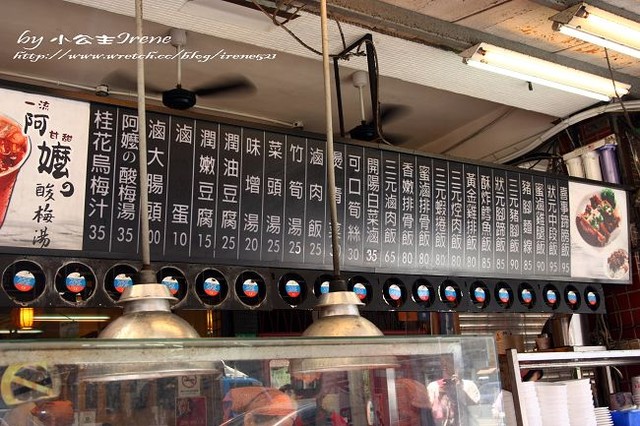 by 小公主Irene
http://www.wretch.cc/blog/irene521
一流
甘甜
阿嬤の
酸梅湯
桂花烏梅汁 35
阿嬤の酸梅湯 35
滷大腸頭 100
滷蛋 10
潤嫩豆腐 15
潤油豆腐 25
味增湯 20
菜頭湯 25
竹筍湯 25
滷肉飯 25
燙青菜 30
可口筍絲 30
開陽白菜滷 35
三元滷肉飯 65
香嫩排骨飯 80
蜜滷排骨飯 80
三元蝦捲飯 80
三元焢肉飯 80
黃金雞排飯 80
酥炸鱈魚飯 85
狀元腳蹄飯 85
三元豬腳飯 95
豬腳麵線 85
蜜滷雞腿飯 90
狀元中段飯 95